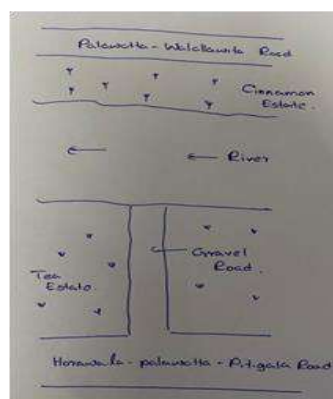 Palawatta - Walallawita Road
Cinnamon
Estate.
River
Gravel
Road.
Tea
Estate
Horawala - palawatta - Pitigala Road